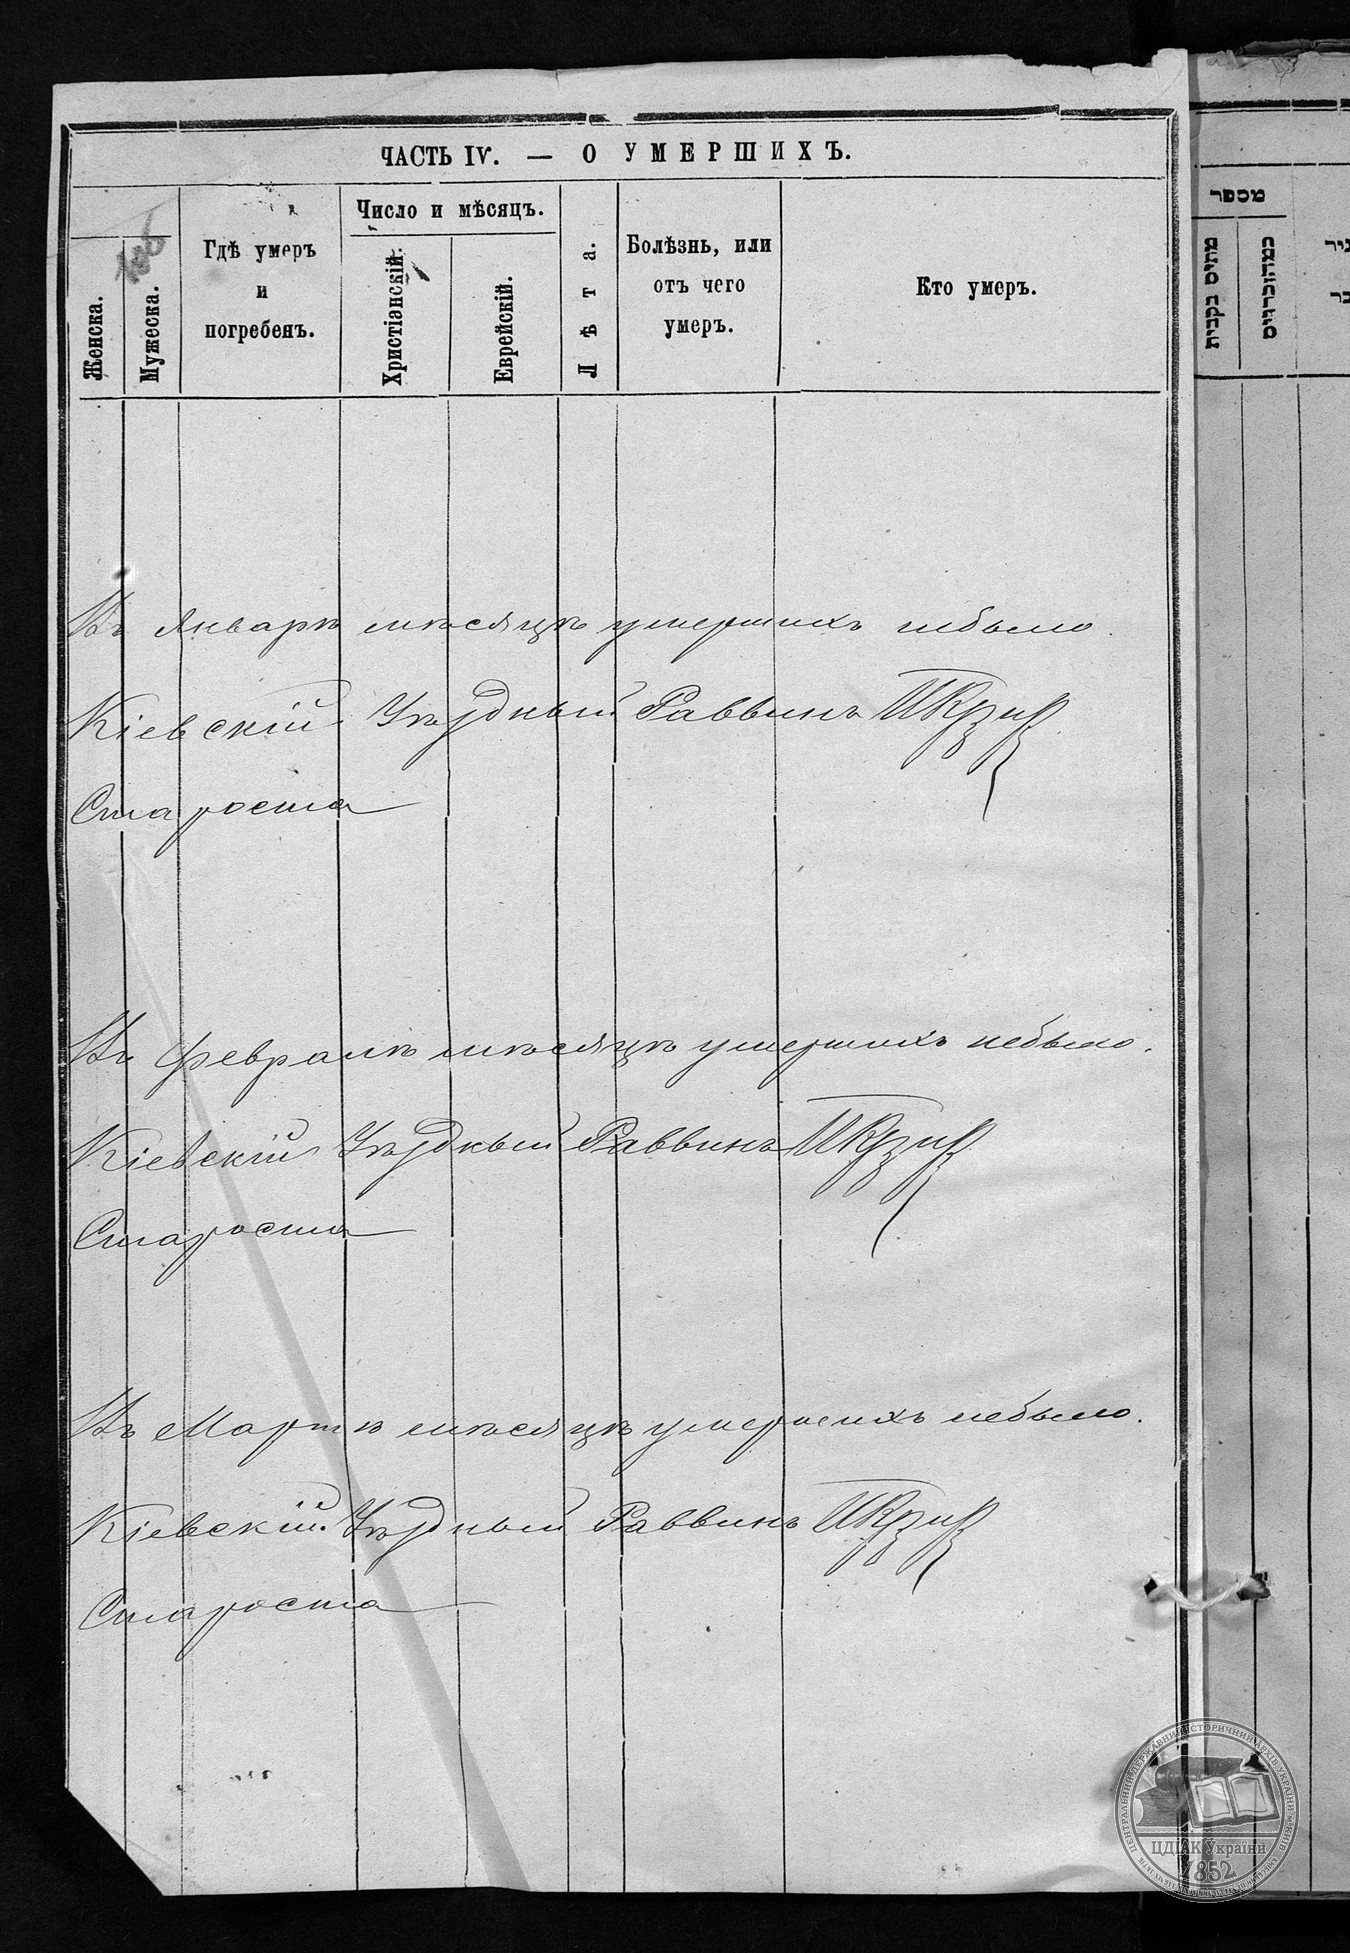 ЧАСТЬ IV. — О УМЕРШИХЪ.
Женска.
Мужеска.
Гдѣ умеръ
и
погребенъ.
Число и мѣсяцъ.
Христіанскій.
Еврейскій.
Лѣта.
Болѣзнь, или
отъ чего
умеръ.
Кто умеръ.
Въ Январѣ мѣсяцѣ умершихъ небыло.
Кіевскій Уѣздный Раввинъ
Староста
Въ Февралѣ мѣсяцѣ умершихъ небыло.
Кіевскій Уѣздный Раввинъ
Староста
Въ Мартѣ мѣсяцѣ умершихъ небыло.
Кіевскій Уѣздный Раввинъ
Староста
מספר
מתים נקבות
ЦДІАК України
1852